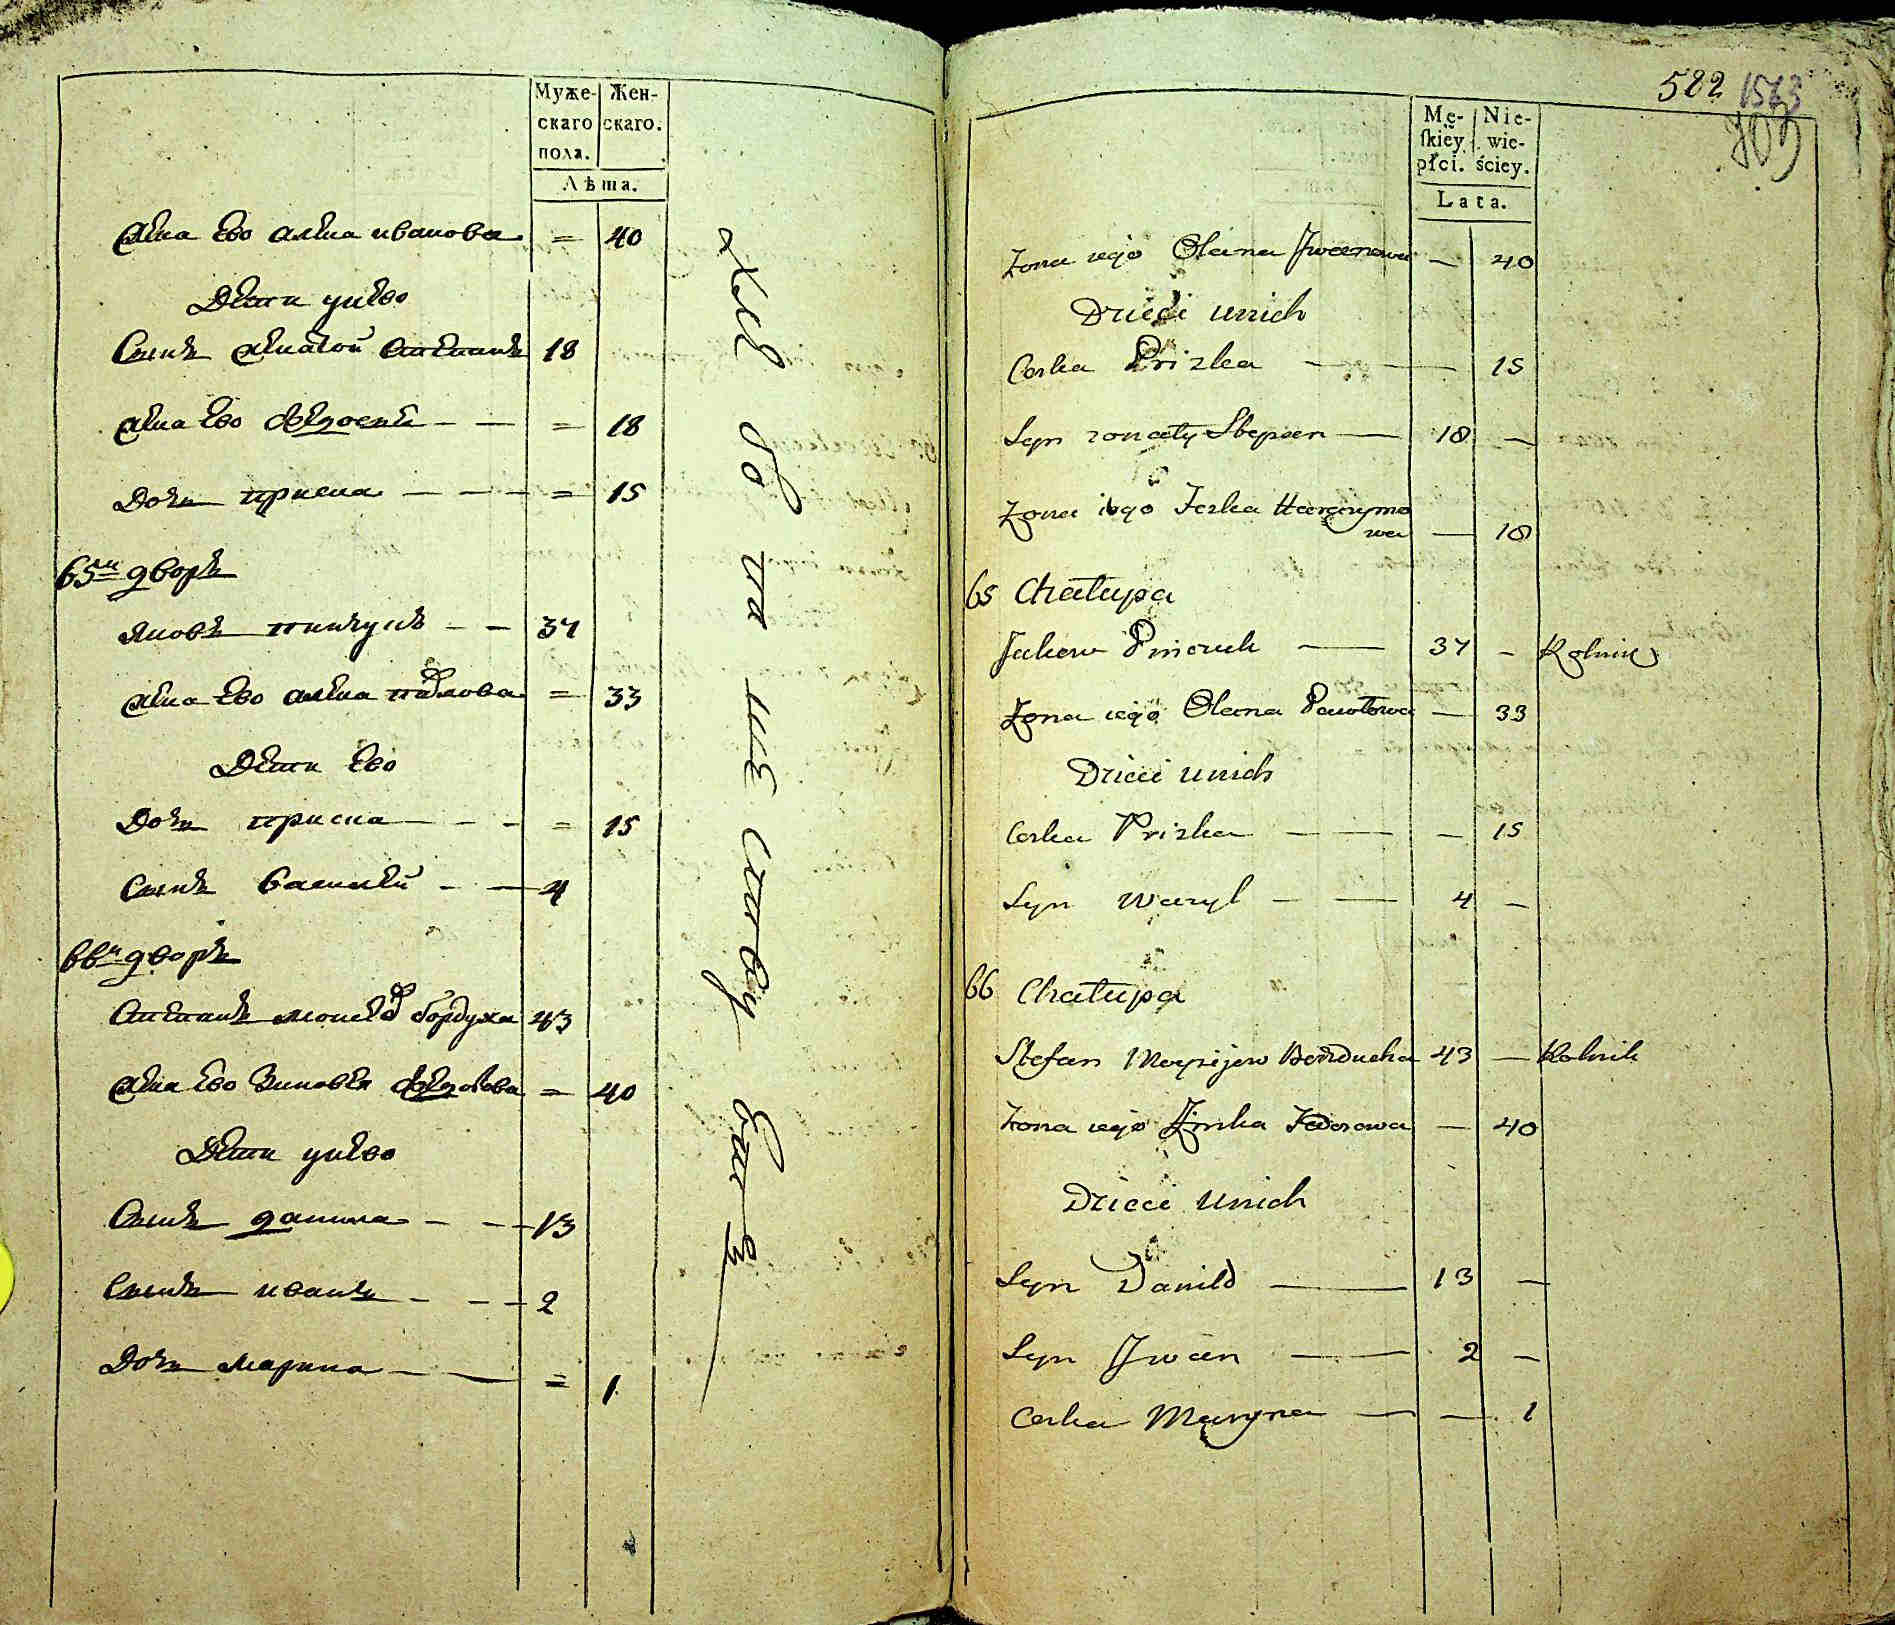 Муже-
скаго
пола.
Жен-
скаго.
Лѣта.
жена ево алена иванова = 40
Дети унево
Сынъ женатой степанъ 18
жена ево - - = 18
Дочьприска - - - = 15
65й дворъ
Яковъ пинчукъ - - 37
жена ево алена павлова = 33
Дети ево
Дочь приска - - - = 15
Сынъ василей - - 4
66й дворъ
Степанъ бордуха 43
жена ево Зиновья = 40
Дети унево
Сынъ данила - - - 13
Сынъ иванъ - - - 2
Дочь марина - - = 1
582
1563
703
Mę-
skiey
płci.
Nie-
wie-
ściey.
Lata.
Zona iego Olena Jwanowa — 40
Dzieci unich
Corka Prizka — — 15
Syn zonaty Stepan — 18 —
Zona iego
wa — 18
65 Chałupa
Jakow Pinczuk — 37 — Rolnik
Zona iego Olena Pawłowa — 33
Dzieci unich
Corka Prizka — — — 15
Syn Wasyl — — 4 —
66 Chałupa
Stefan Borducha 43 — Rolnik
Zona iego Zinka Fedorowa — 40
Dzieci unich
Syn Daniło — 13 —
Syn Jwan — 2 —
Corka Maryna — — 1